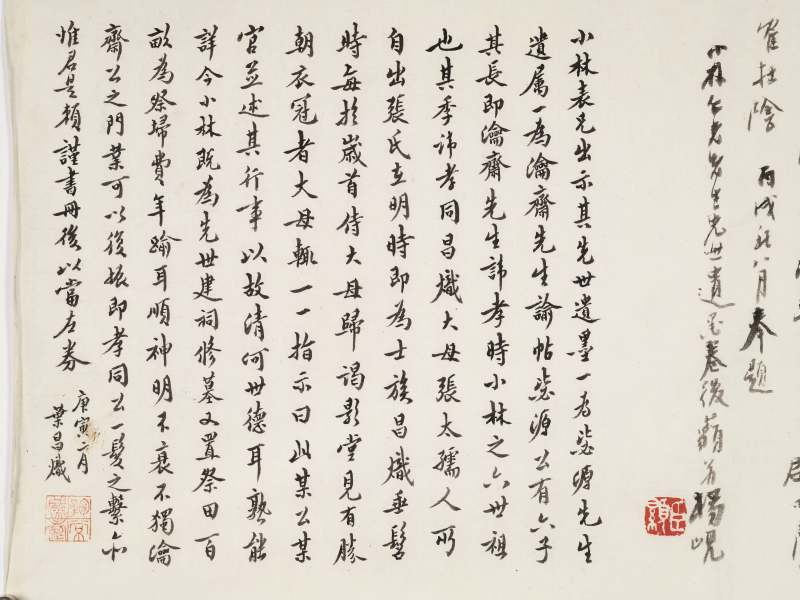 崔杜陰 丙戌秋八月奉題
小林仁兄先生先世遺墨卷後 藐翁楊峴
小林表兄出示其先世遺墨一為毖源先生
遺屬一為瀹齋先生諭帖毖源公有六子
其長即瀹齋先生諱孝時小林之六世祖
也其季諱孝同昌熾大母張太孺人所
自出張氏在明時即為士族昌熾垂髫
時每於歲首侍大母歸謁影堂見有勝
朝衣冠者大母輒一一指示曰此某公某
官並述其行事以故清河世德耳熟能
詳今小林既為先世建祠修墓又置祭田百
畝為祭埽費年踰耳順神明不衰不獨瀹
齋公之門業可以復振即孝同公一髮之繫亦
惟君是賴謹書冊後以當左券
庚寅二月
葉昌熾